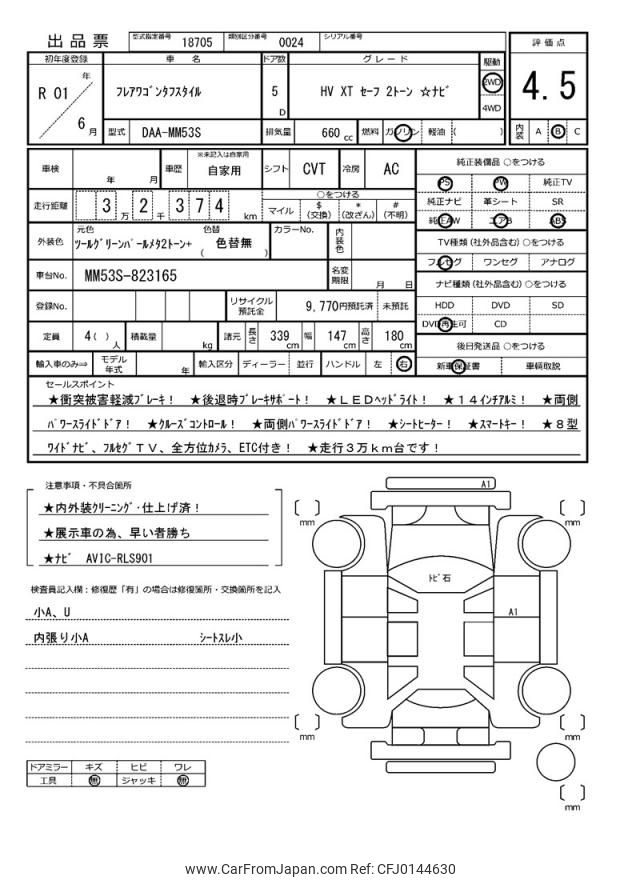 出品票 型式指定番号 18705 類別区分番号 0024 シリアル番号
評価点
4.5
内装 A B C
初年度登録 車名 ドア数 グレード 駆動
R 01 年 6 月
フレアワゴンタフスタイル 5 D HV XT セーフ 2トーン ☆ナビ 2WD 4WD
型式 DAA-MM53S 排気量 660 cc 燃料 ガソリン 軽油 ( )
車検 年 月 車歴 ※未記入は自家用 自家用 シフト CVT 冷房 AC
走行距離 3 万 2 千 3 7 4 km ○をつける
マイル $ (交換) * (改ざん) # (不明)
外装色 元色 ツールグリーンパールメタ2トーン+ 色替 ( 色替無 ) カラーNo. 内装色
車台No. MM53S-823165 名変期限 月 日
登録No. リサイクル預託金 9,770円預託済 未預託
定員 4 ( ) 人 積載量 kg 諸元 長さ 339 cm 幅 147 cm 高さ 180 cm
輸入車のみ⇨ モデル年式 年 輸入区分 ディーラー 並行 ハンドル 左 右
純正装備品 ○をつける
PS PW 純正TV
純正ナビ 革シート SR
純正AW エアB ABS
TV種類 (社外品含む) ○をつける
フルセグ ワンセグ アナログ
ナビ種類 (社外品含む) ○をつける
HDD DVD SD
DVD再生可 CD
後日発送品 ○をつける
新車保証書 車輌取説
セールスポイント
★衝突被害軽減ブレーキ! ★後退時ブレーキサポート! ★LEDヘッドライト! ★14インチアルミ! ★両側
パワースライドドア! ★クルーズコントロール! ★両側パワースライドドア! ★シートヒーター! ★スマートキー! ★8型
ワイドナビ、フルセグTV、全方位カメラ、ETC付き! ★走行3万km台です!
注意事項・不具合箇所
★内外装クリーニング・仕上げ済!
★展示車の為、早い者勝ち
★ナビ AVIC-RLS901
検査員記入欄:修復歴「有」の場合は修復箇所・交換箇所を記入
小A、U
内張り小A シートスレ小
ドアミラー キズ ヒビ ワレ
工具 無 ジャッキ 無
A1
トビ石
A1
mm
mm
mm
mm
mm
www.CarFromJapan.com Ref: CFJ0144630